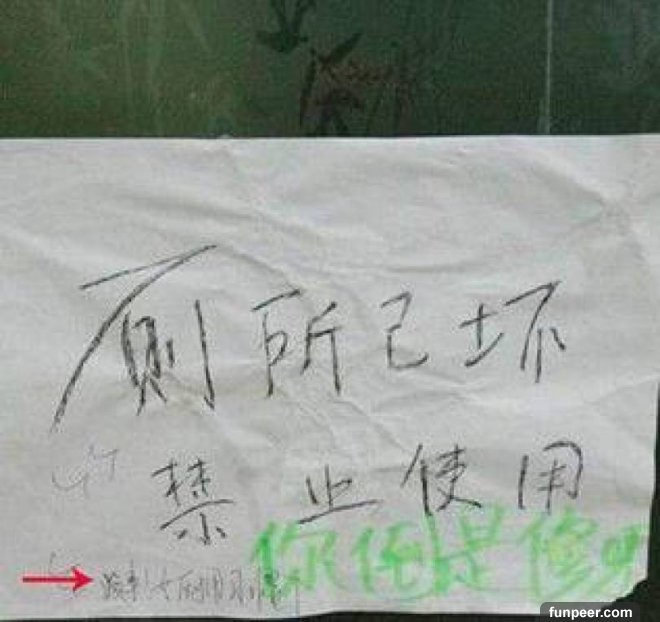 厕所已坏
禁止使用
你倒是修
funpeer.com